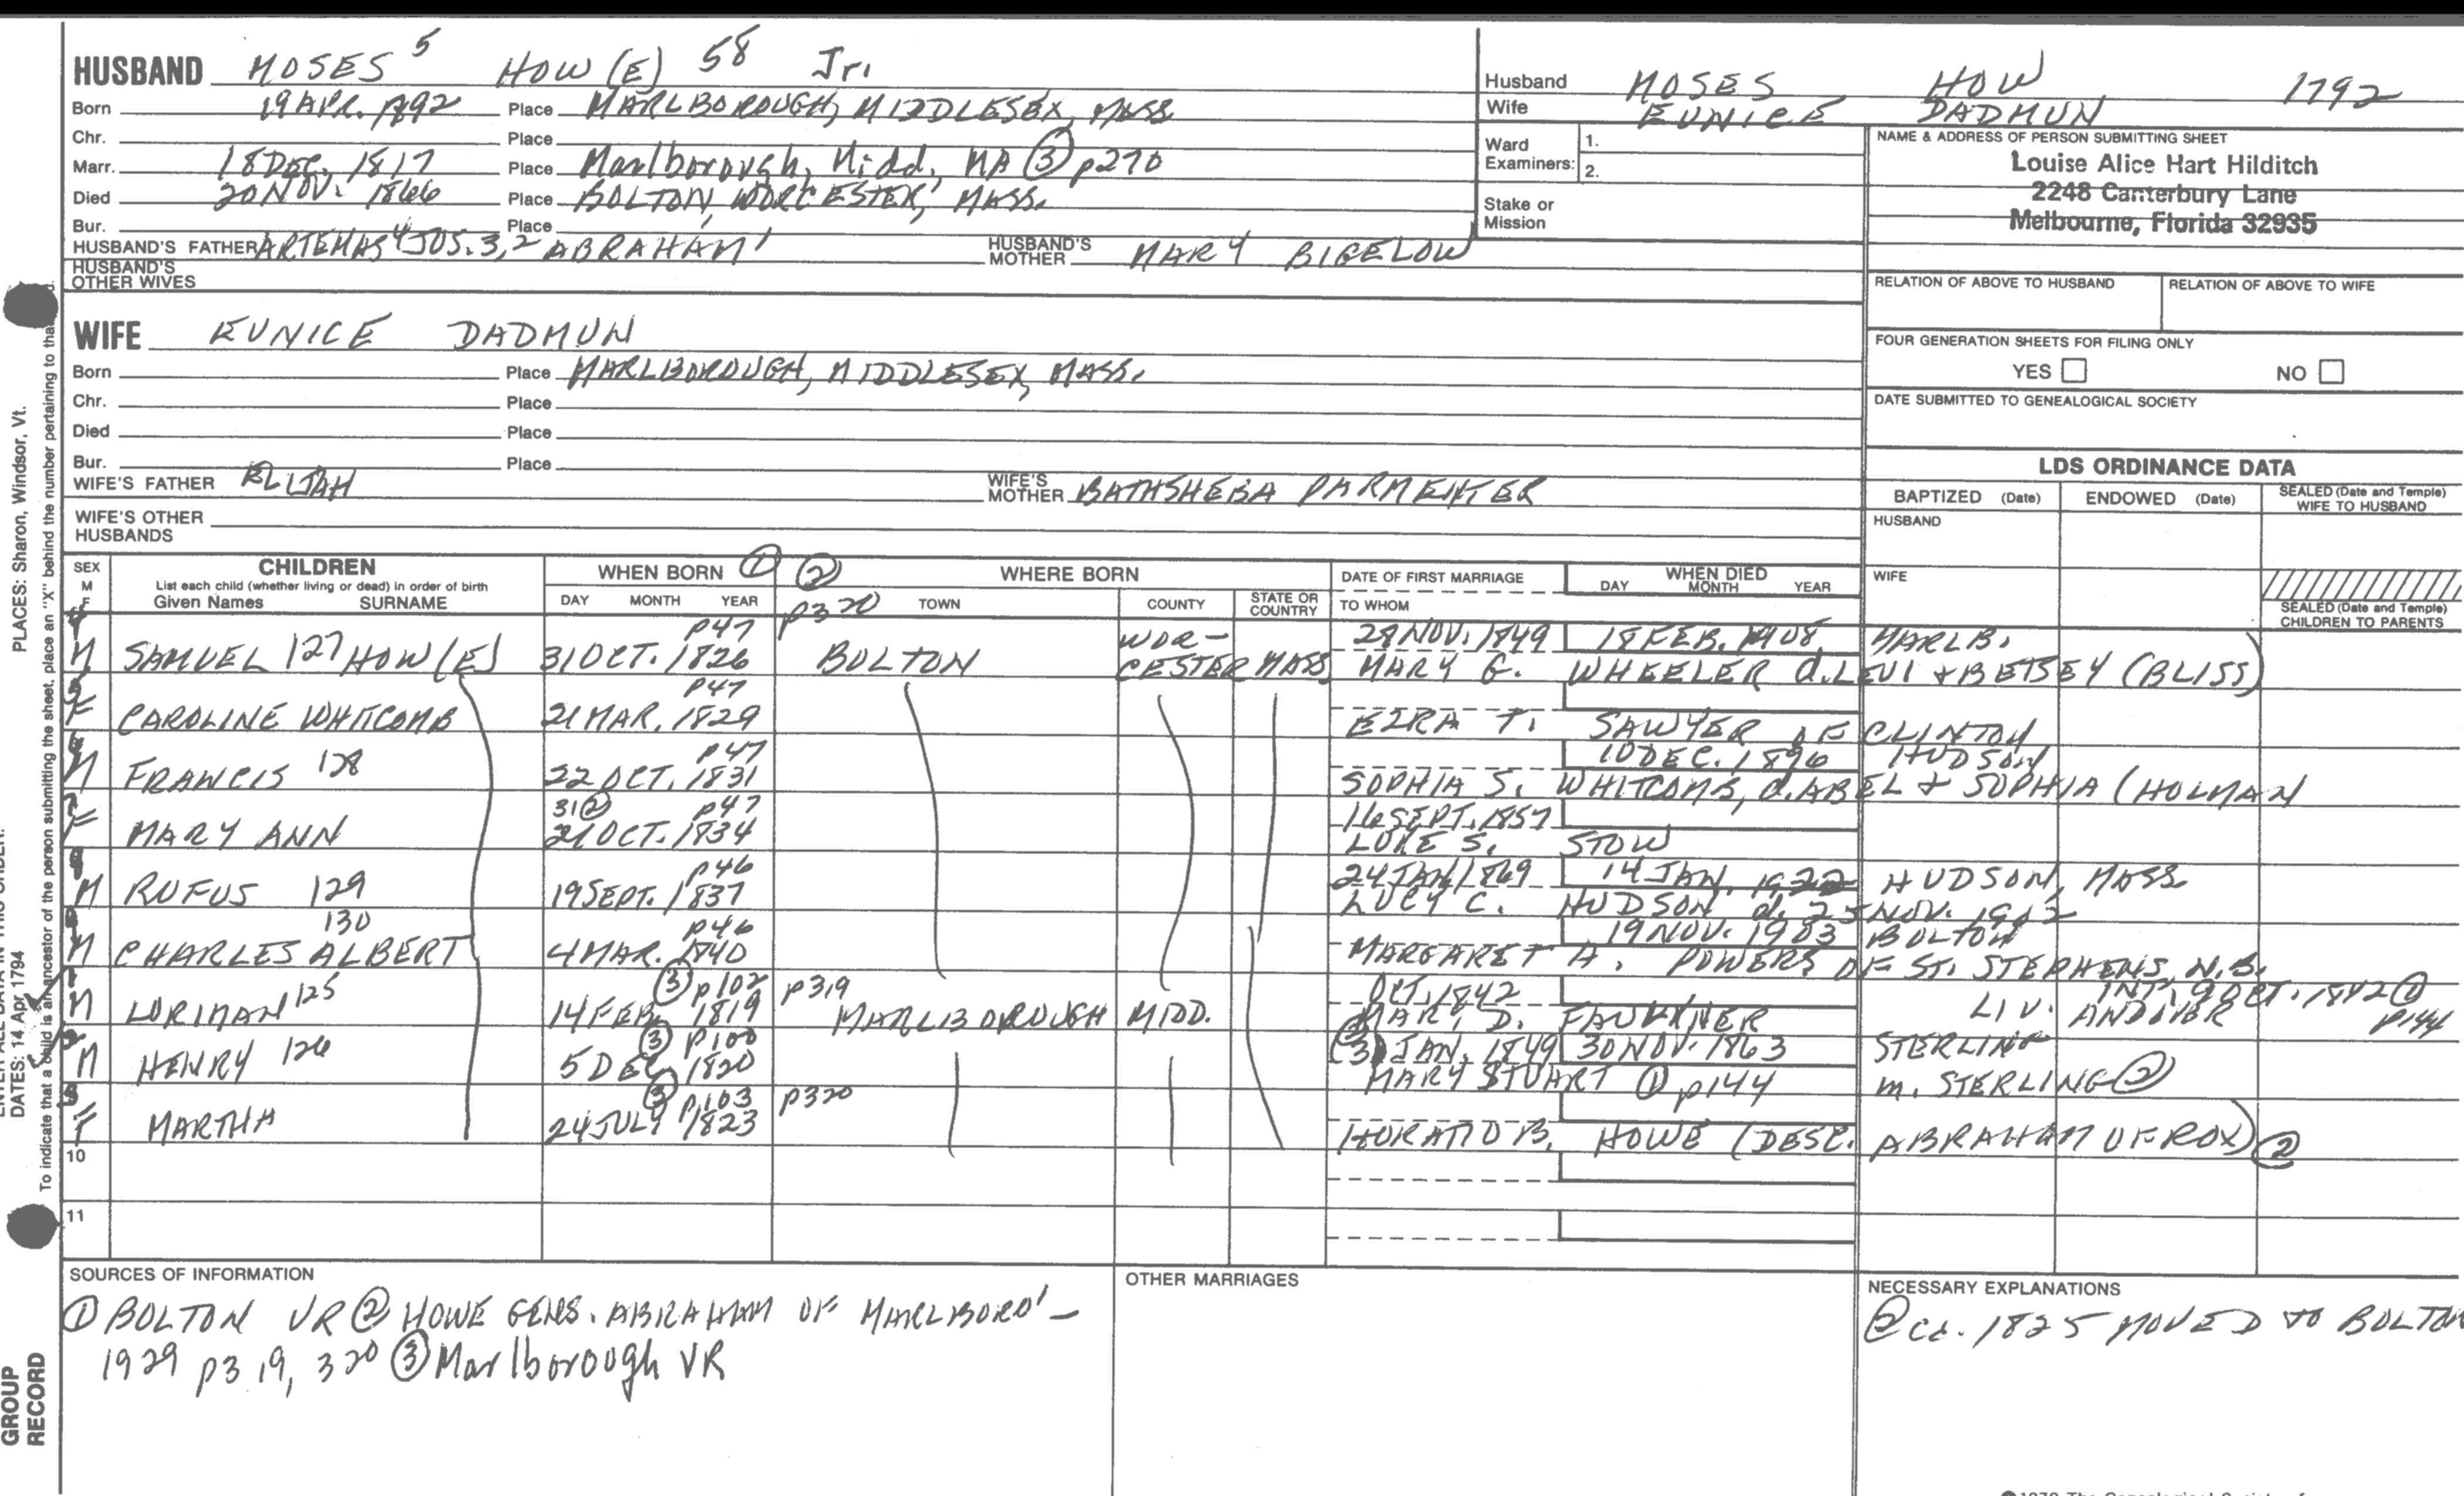 HUSBAND MOSES 5 HOW(E) 58 Jr.
Born 19 APR. 1792 Place MARLBOROUGH, MIDDLESEX, MASS
Chr. Place
Marr. 18 DEC. 1817 Place Marlborough, Midd, MA ③ p270
Died 20 NOV. 1866 Place BOLTON, WORCESTER, MASS.
Bur. Place
HUSBAND'S FATHER ARTEMAS 4 JOS. 3, 2 ABRAHAM 1 HUSBAND'S MOTHER MARY BIGELOW
HUSBAND'S OTHER WIVES
Husband MOSES HOW 1792
Wife EUNICE DADMUN
Ward Examiners: 1.
2.
Stake or Mission
NAME & ADDRESS OF PERSON SUBMITTING SHEET
Louise Alice Hart Hilditch
2248 Canterbury Lane
Melbourne, Florida 32935
RELATION OF ABOVE TO HUSBAND RELATION OF ABOVE TO WIFE
FOUR GENERATION SHEETS FOR FILING ONLY
YES NO
DATE SUBMITTED TO GENEALOGICAL SOCIETY
WIFE EUNICE DADMUN
Born Place MARLBOROUGH, MIDDLESEX, MASS.
Chr. Place
Died Place
Bur. Place
WIFE'S FATHER ELIJAH WIFE'S MOTHER BATHSHEBA PARMENTER
WIFE'S OTHER HUSBANDS
LDS ORDINANCE DATA
BAPTIZED (Date) ENDOWED (Date) SEALED (Date and Temple) WIFE TO HUSBAND
HUSBAND
WIFE
SEALED (Date and Temple) CHILDREN TO PARENTS
SEX M F
CHILDREN
List each child (whether living or dead) in order of birth
Given Names SURNAME
WHEN BORN ① ②
DAY MONTH YEAR
WHERE BORN
p320 TOWN COUNTY STATE OR COUNTRY
DATE OF FIRST MARRIAGE
TO WHOM
WHEN DIED
DAY MONTH YEAR
4 p47 WOR- 28 NOV. 1849 18 FEB. 1908 MARLB.
M SAMUEL 127 HOW(E) 31 OCT. 1826 BOLTON CESTER MASS MARY G. WHEELER d. LEVI + BETSEY (BLISS)
5 p47
F CAROLINE WHITCOMB 21 MAR. 1829 EZRA T. SAWYER OF CLINTON
6 p47 10 DEC. 1896 HUDSON
M FRANCIS 128 22 OCT. 1831 SOPHIA S. WHITCOMB, d. ABEL + SOPHIA (HOLMAN
7 31 ② p47 16 SEPT. 1857
F MARY ANN 21 OCT. 1834 LUKE S. STOW
8 p46 24 JAN 1869 14 JAN. 1922 HUDSON, MASS.
M RUFUS 129 19 SEPT. 1837 LUCY C. HUDSON d. 25 NOV. 1912
9 130 p46 19 NOV. 1903 BOLTON
M CHARLES ALBERT 4 MAR. 1840 MARGARET A. POWERS OF ST. STEPHENS, N.B.
1 ③ p102 p319 OCT. 1842 INT. 9 OCT. 1842 ①
M LORIMAN 125 14 FEB. 1819 MARLBOROUGH MIDD. MARY D. FAULKNER LIV. ANDOVER p144
2 ③ p100 JAN. 1849 30 NOV. 1863 STERLING
M HENRY 126 5 DEC. 1820 MARY STUART ① p144 m. STERLING ②
3 ③ p103 p320
F MARTHA 24 JULY 1823 HORATIO B. HOWE (DESC. ABRAHAM OF ROX) ②
10
11
SOURCES OF INFORMATION
① BOLTON VR ② HOWE GENS. ABRAHAM OF MARLBORO' -
1929 p319, 320 ③ Marlborough VR
OTHER MARRIAGES
NECESSARY EXPLANATIONS
② ca. 1825 MOVED TO BOLTON
PLACES: Sharon, Windsor, Vt.
DATES: 14 Apr 1794
To indicate that a child is an ancestor of the person submitting the sheet, place an "X" behind the number pertaining to that
GROUP
RECORD